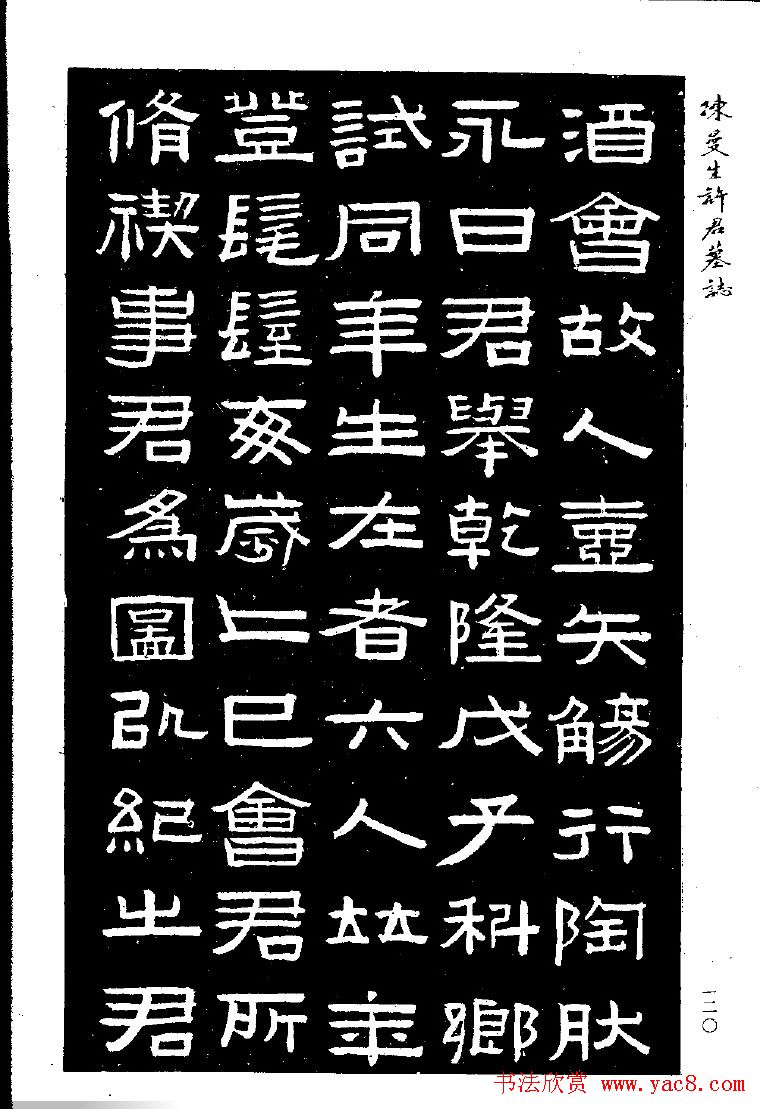 陳曼生許君墓誌
酒會故人壺矢觴行陶肰
永日君舉乾隆戊子科鄉
試同年生在者六人竝年
登髦耋每歲上巳會君所
脩禊事君爲圖以紀之君
一二〇
书法欣赏 www.yac8.com